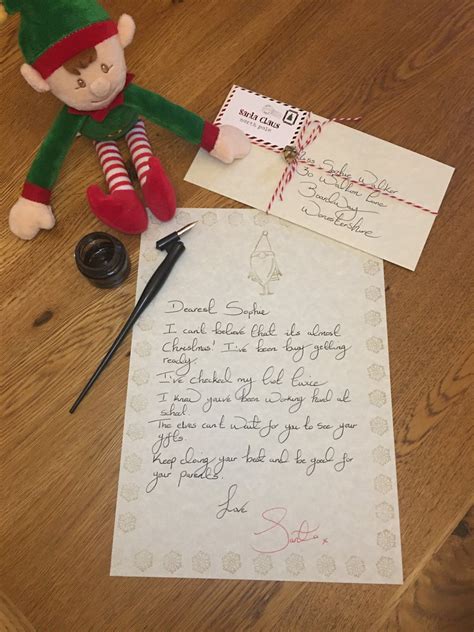 Santa Claus
north pole
Miss Sophie Walker
30 Walker Lane
Worcestershire
Dearest Sophie
I can't believe that its almost
Christmas! I've been busy getting
ready.
I've checked my list twice
I know you've been working hard at
school.
The elves can't wait for you to see your
gifts.
Keep doing your best and be good for
your parents.
Love
Santa x